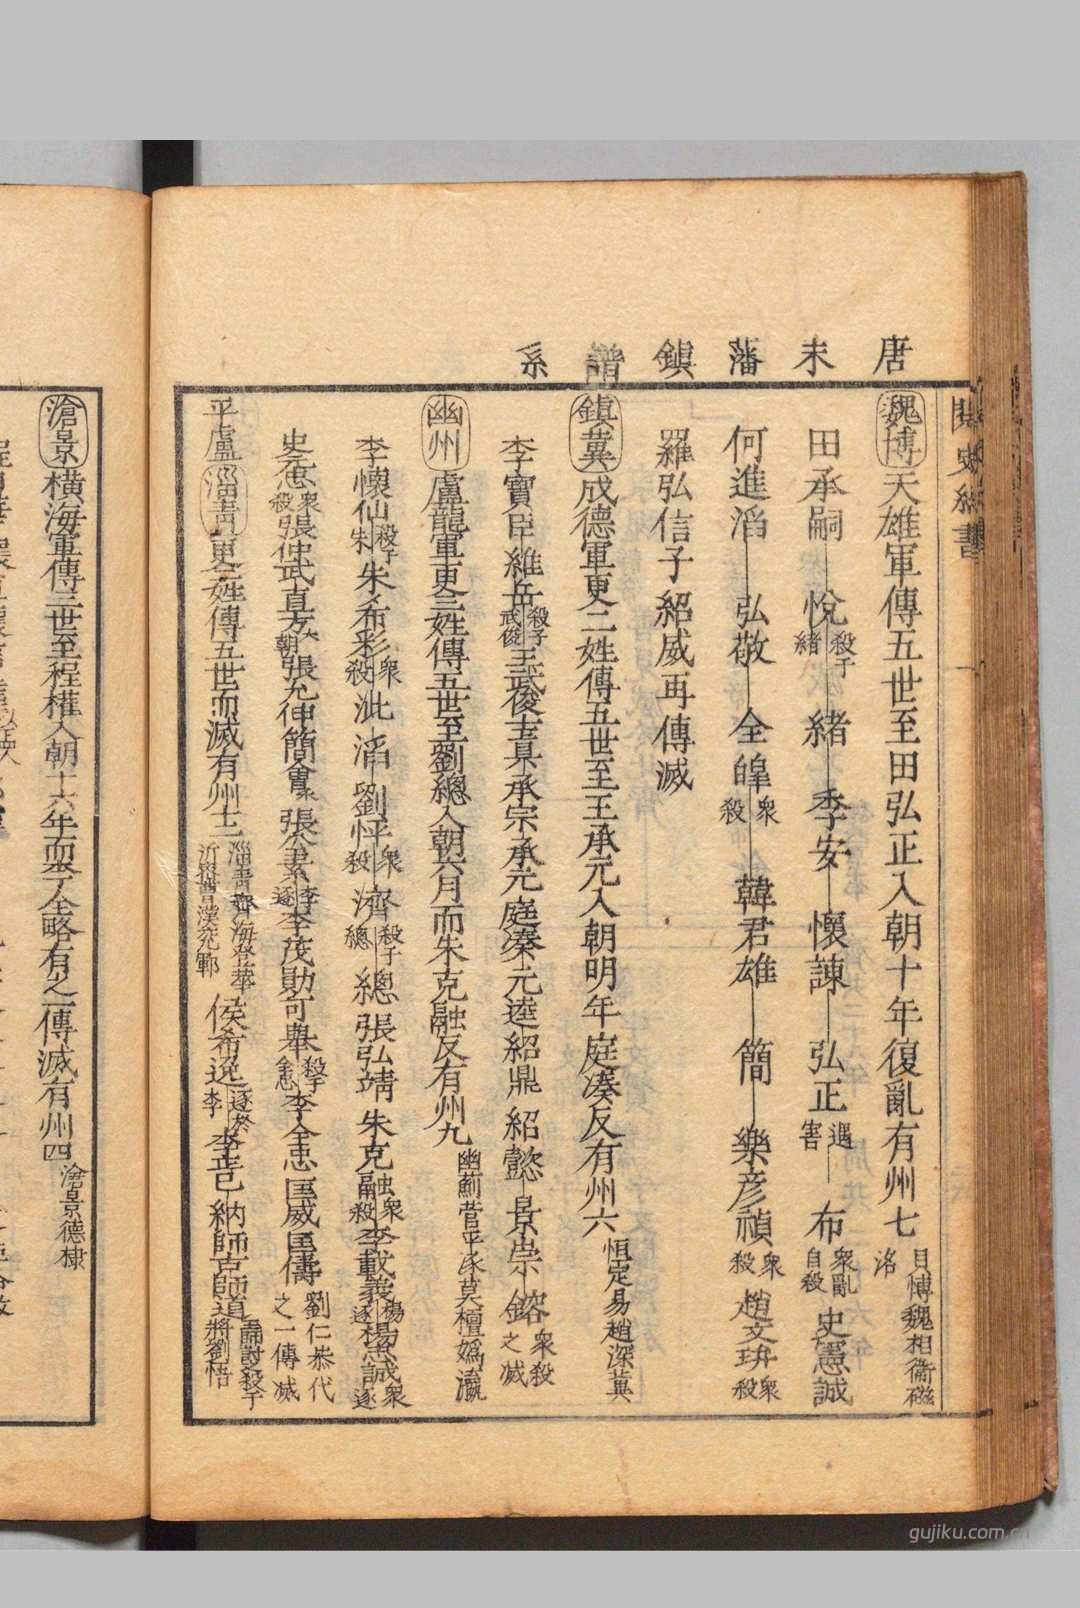 唐末藩鎮譜系
閱史約書
魏博天雄軍傳五世至田弘正入朝十年復亂有州七貝博魏相衛磁洺
田承嗣 悅殺子緒 緒 季安 懷諫 弘正遇害 布衆亂自殺 史憲誠
何進滔 弘敬 全皥衆殺 韓君雄 簡 樂彦禎衆殺 趙文㺹衆殺
羅弘信子紹威再傳滅
鎮冀成德軍更二姓傳五世至王承元入朝明年庭湊反有州六恒定易趙深冀
李寶臣 維岳殺于武俊 王武俊 士真 承宗 承元 庭湊 元逵 紹鼎 紹懿 景崇 鎔衆殺之滅
幽州盧龍軍更三姓傳五世至劉總入朝六月而朱克融反有州九幽薊營平涿莫檀嬀瀛
李懷仙殺于朱 朱希彩衆殺 泚 滔 劉怦 濟殺于總 總 張弘靖 朱克融衆殺 李載義楊逐 楊志誠衆逐
史元忠衆殺 張仲武 直方入朝 張允伸 簡會 張公素李逐 李茂勛 可舉殺于全忠 李全忠 匡威 匡儔 劉仁恭代之一傳滅
平盧淄青更二姓傳五世而滅有州十二淄青齊海登萊沂密曹濮兖鄆 侯希逸逐於李 李正巳 納 師古 師道討殺于將劉悟
滄景橫海軍傳三世至程權入朝十六年而李全略有之一傳滅有州四滄景德棣
gujiku.com.cn